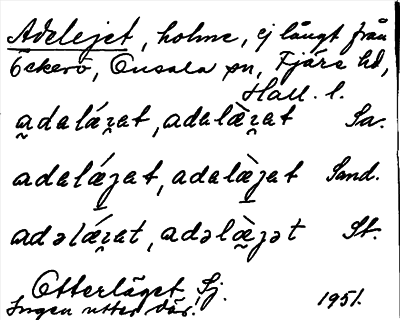 Adelejet, holme, ej långt från
Öckerö, Onsala sn, Fjäre hd,
Hall. l.
adalǽʒ̯at, adalæ̀ʒ̯at Sa.
adalǽʒat, adalæ̀ʒat Sand.
adəlǽʒ̯at, adəlæ̀ʒət St.
Otterläget, Sj.
Ingen utter där. 1951.